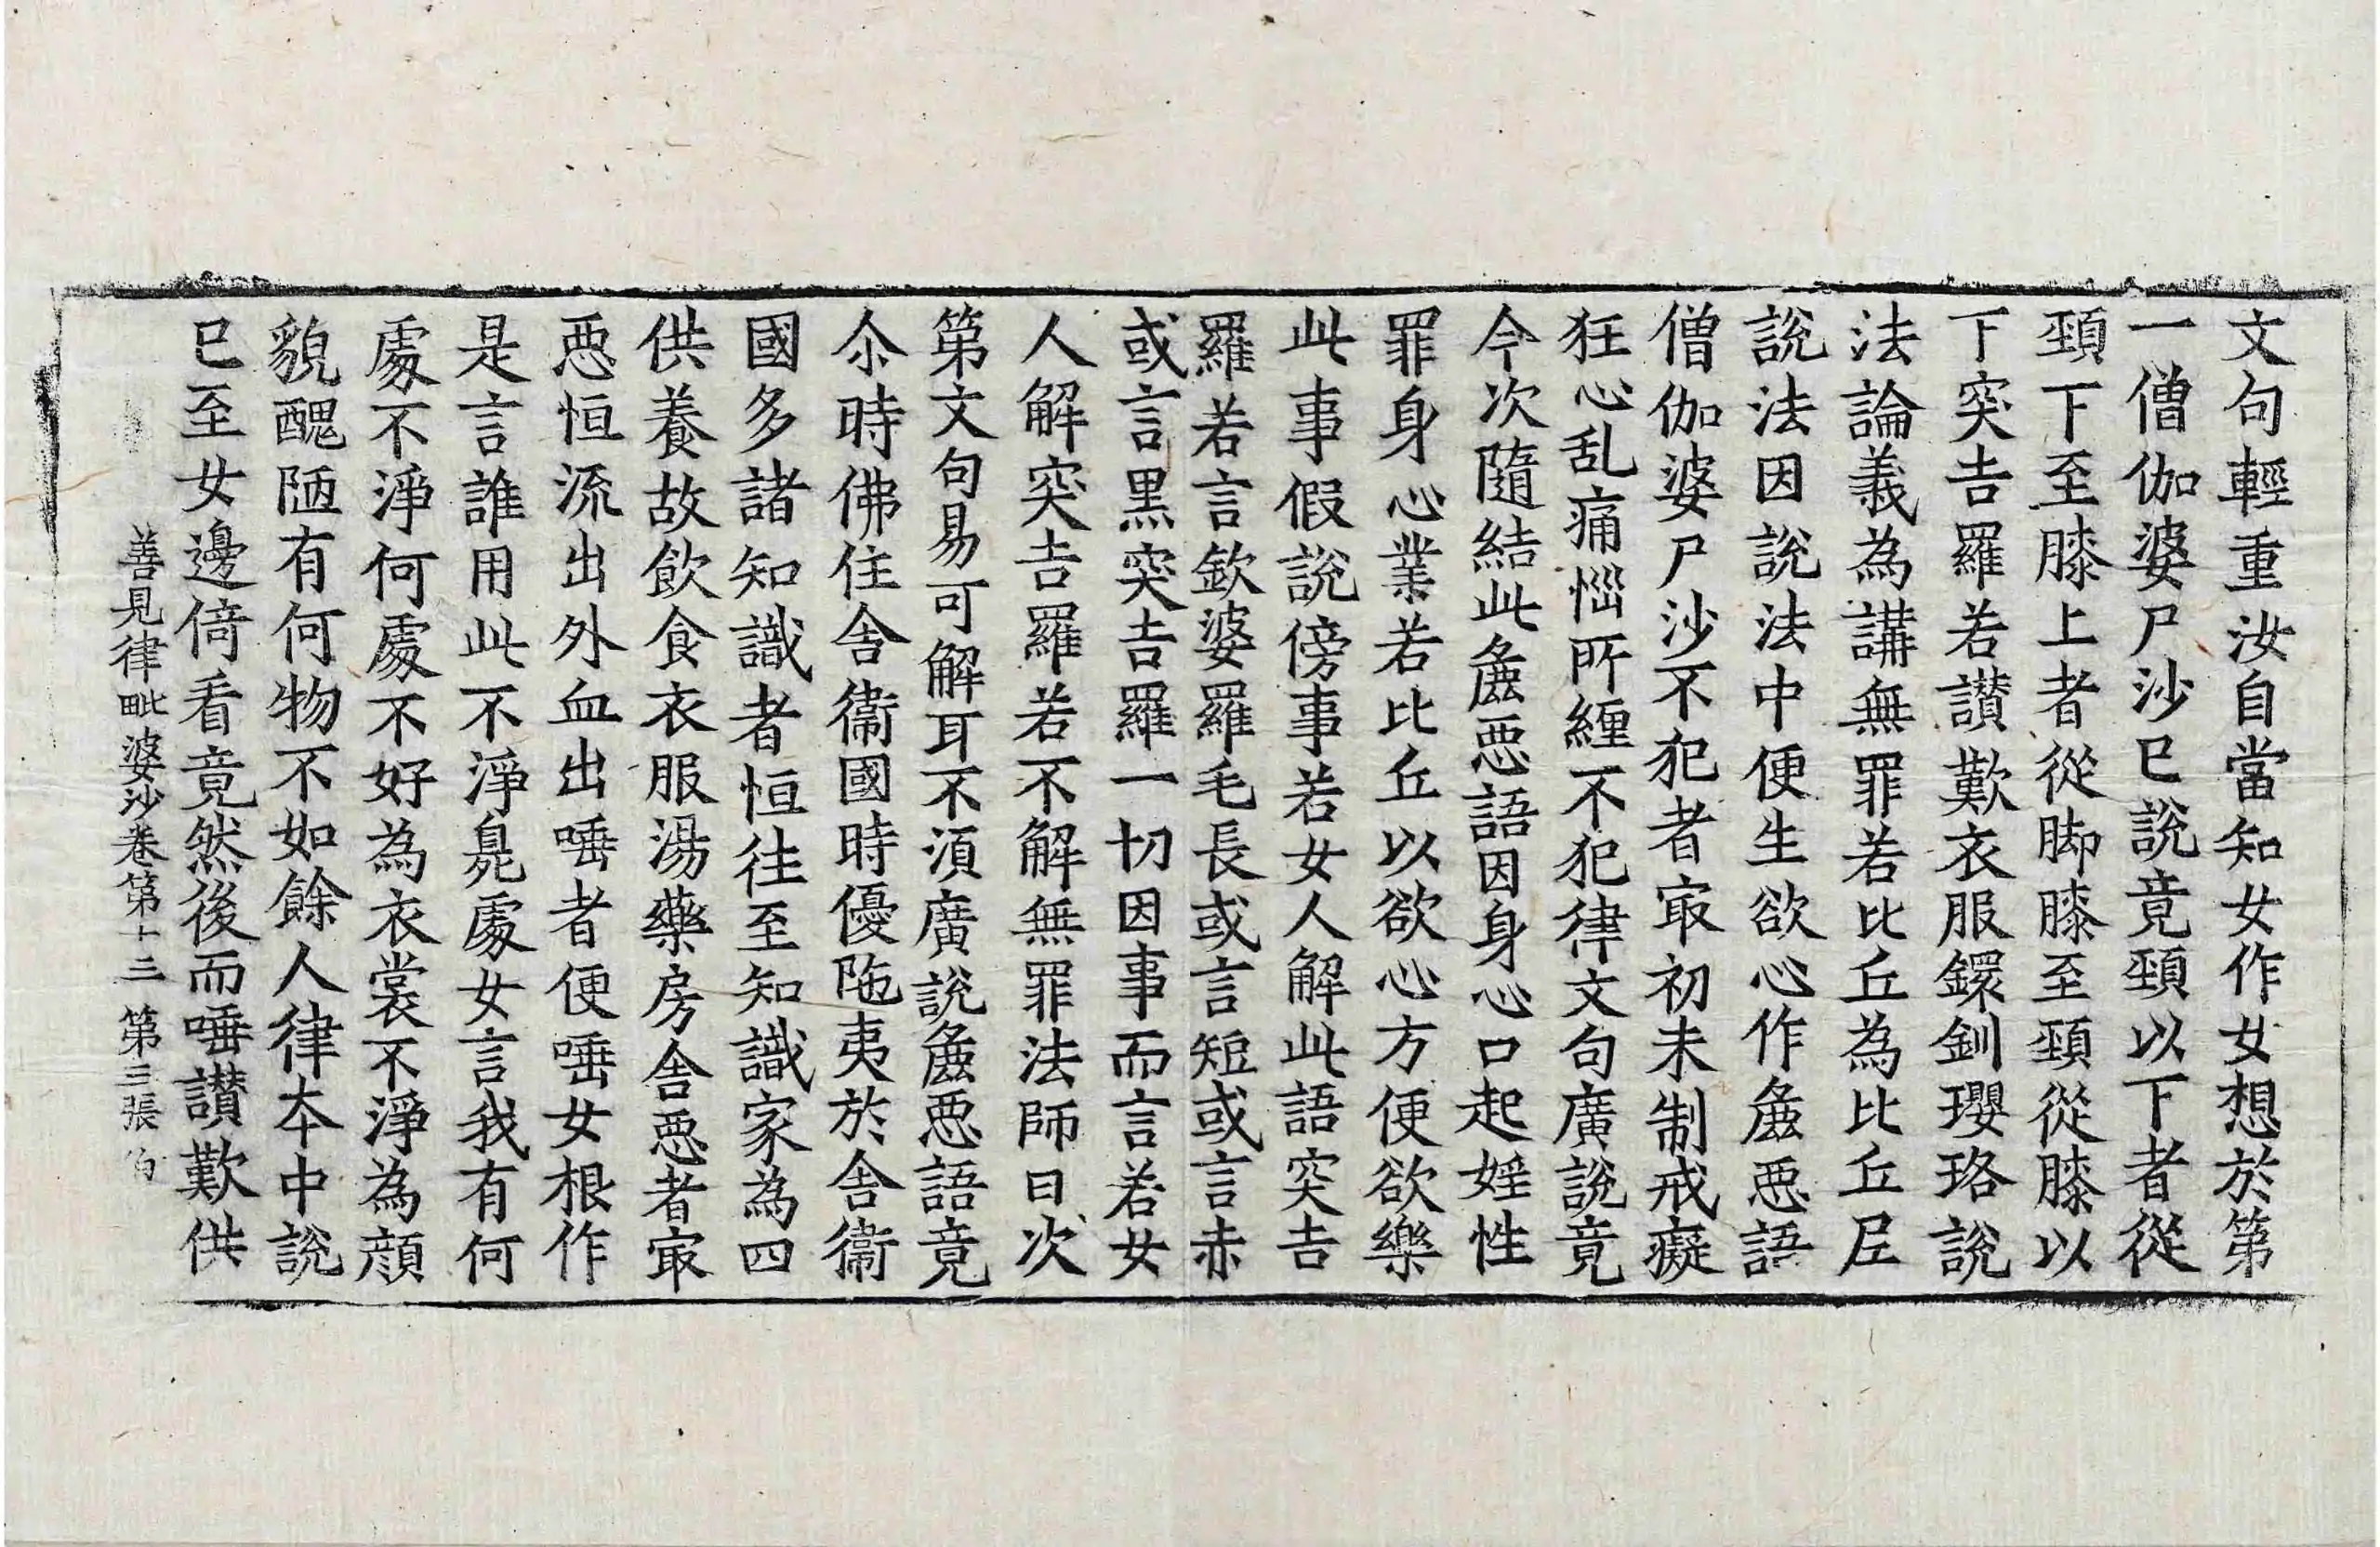 文句輕重汝自當知女作女想於第
一僧伽婆尸沙已說竟頸以下者從
頸下至膝上者從脚膝至頸從膝以
下突吉羅若讃歎衣服鐶釧瓔珞說
法論義為講無罪若比丘為比丘尼
說法因說法中便生欲心作麁惡語
僧伽婆尸沙不犯者㝡初未制戒癡
狂心乱痛惱所纏不犯律文句廣說竟
今次隨結此麁惡語因身心口起婬性
罪身心業若比丘以欲心方便欲樂
此事假說傍事若女人解此語突吉
羅若言欽婆羅毛長或言短或言赤
或言黑突吉羅一切因事而言若女
人解突吉羅若不解無罪法師曰次
第文句易可解耳不須廣說麁惡語竟
尒時佛住舍衞國時優陁夷於舍衞
國多諸知識者恒徃至知識家為四
供養故飲食衣服湯藥房舍惡者㝡
惡恒流出外血出唾者便唾女根作
是言誰用此不淨㒵處女言我有何
處不淨何處不好為衣裳不淨為顔
貌醜陋有何物不如餘人律夲中說
已至女邊倚看竟然後而唾讃歎供
善見律毗婆沙卷第十三 第三張